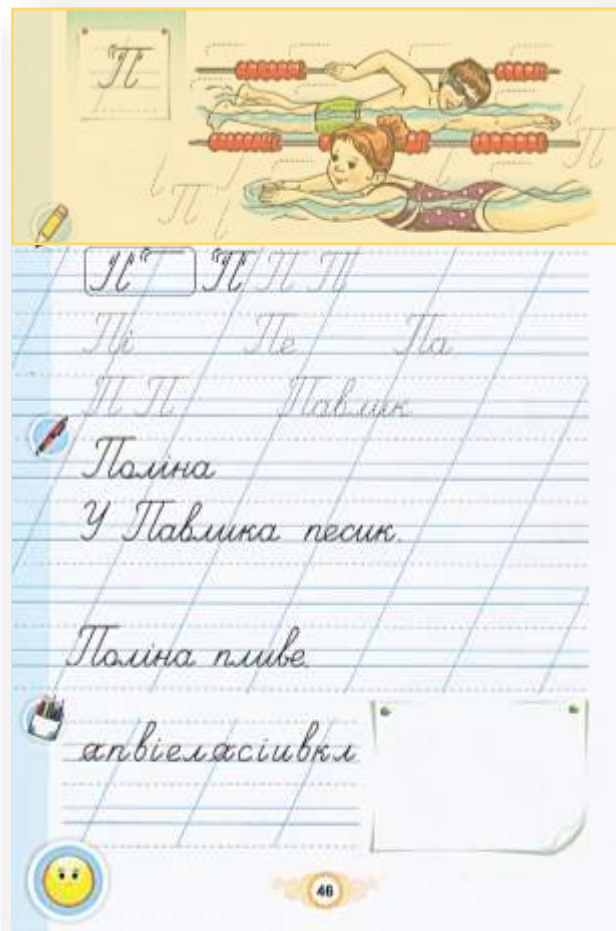 П
П П
П П П П
Пі Пе Па
П П Павлик
Поліна
У Павлика песик.
Поліна пливе.
апвієласіивкл
46